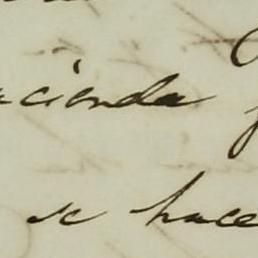 acienda
se hace